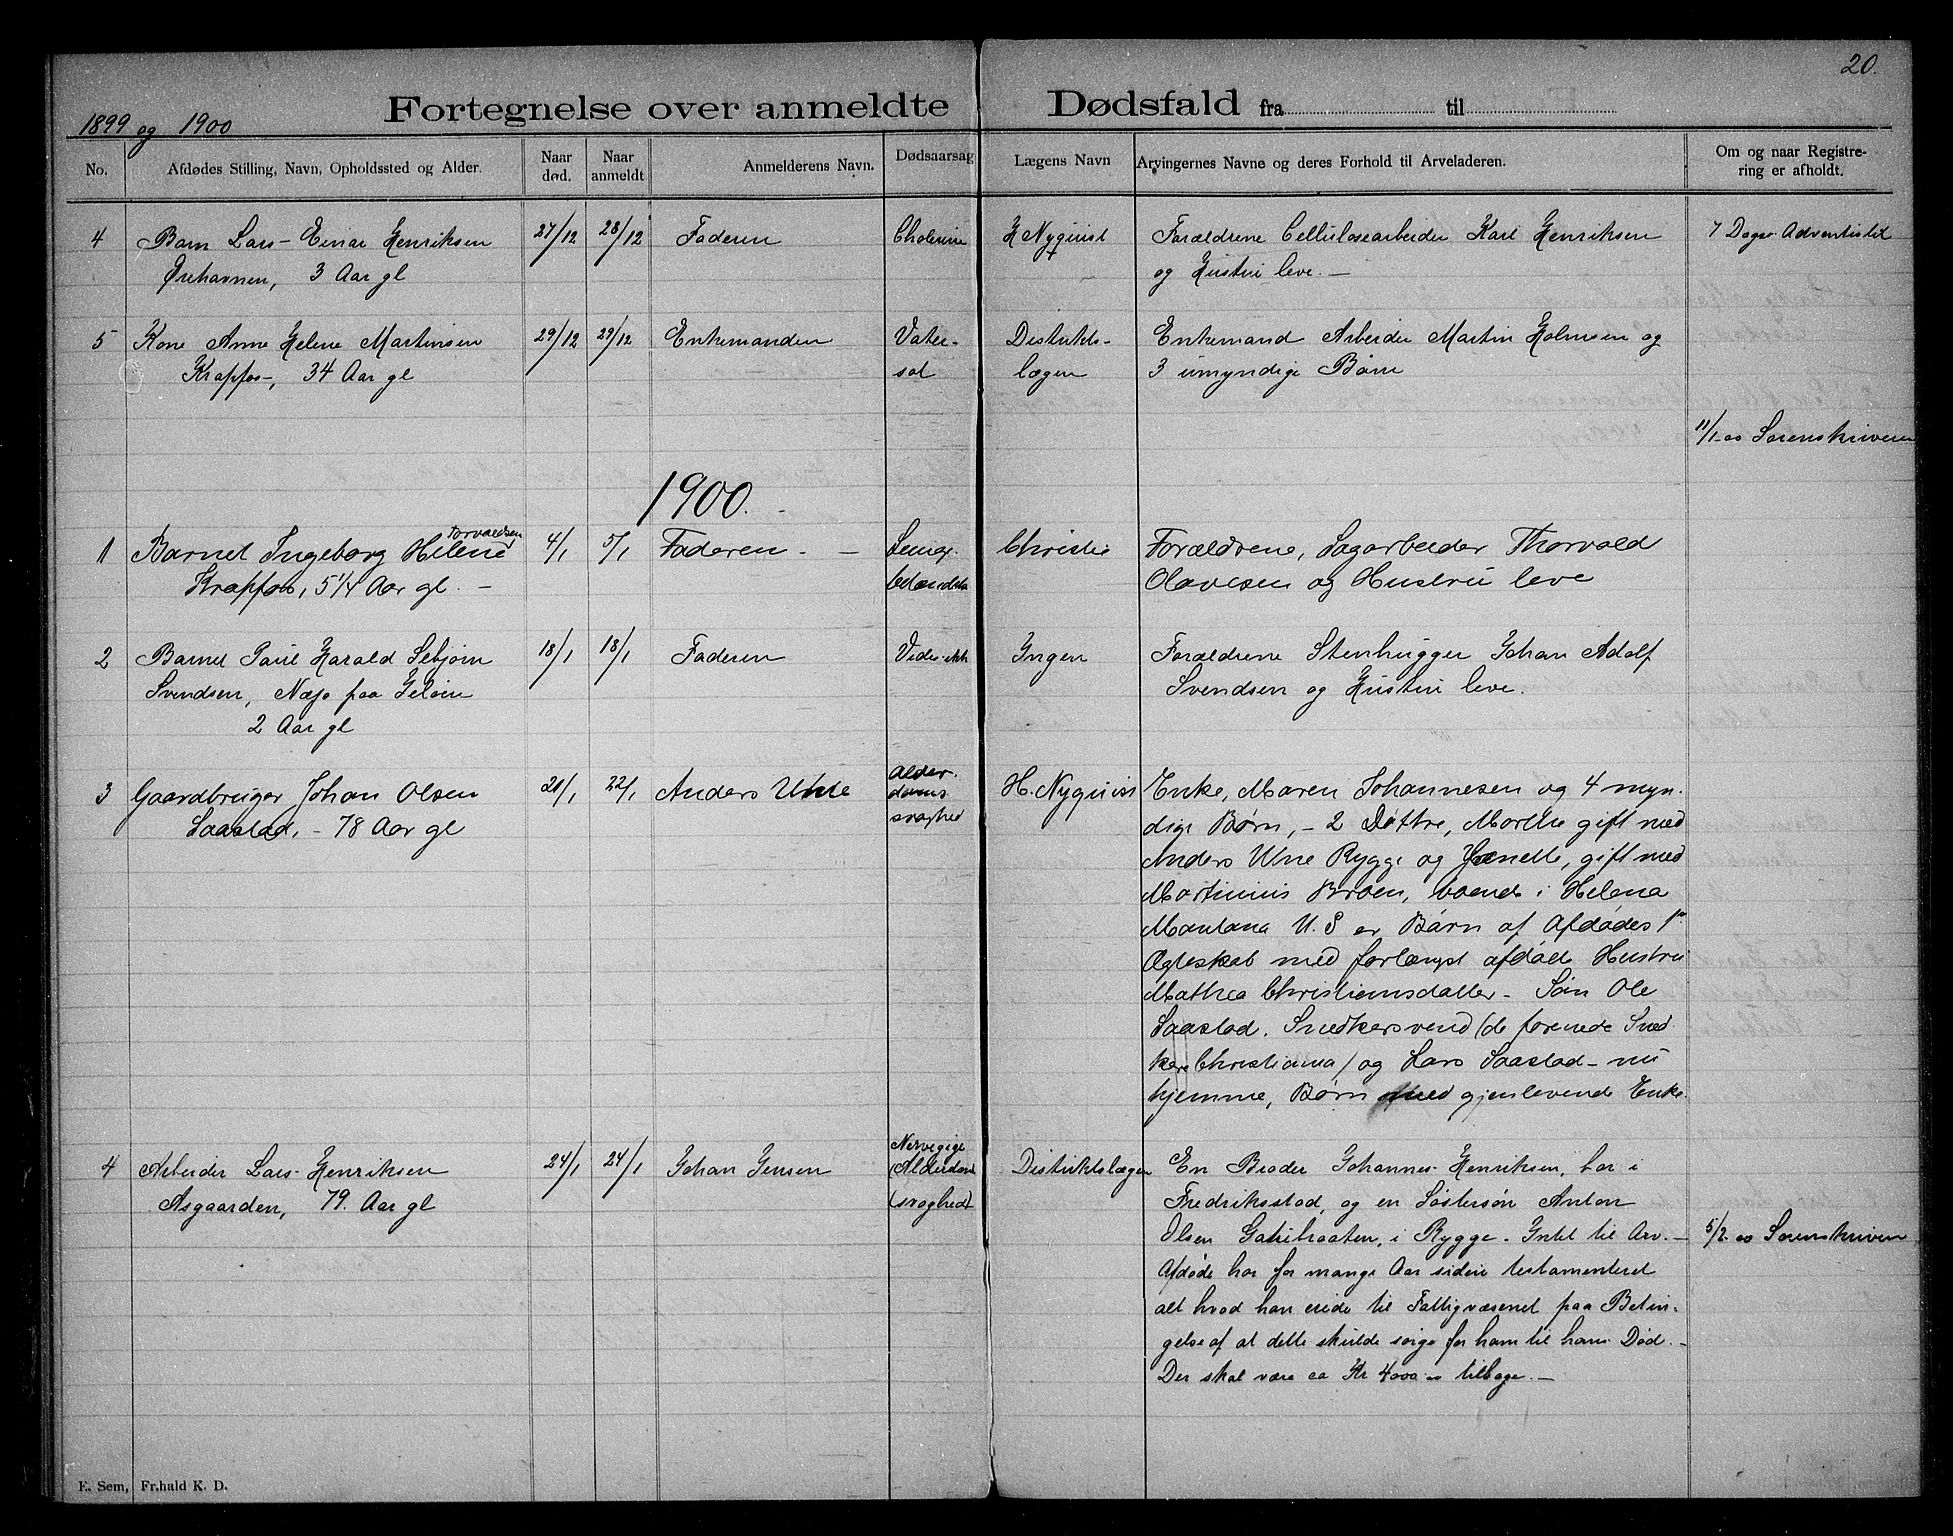 20.
1899 og 1900
Fortegnelse over anmeldte Dødsfald fra til
No.
Afdødes Stilling, Navn, Opholdssted og Alder.
Naar død.
Naar anmeldt
Anmelderens Navn.
Dødsaarsag
Lægens Navn
Arvingernes Navne og deres Forhold til Arveladeren.
Om og naar Registre-
ring er afholdt.
4
Barn Lars Einar Henriksen
Ørehavnen, 3 Aar gl
27/12
28/12
Faderen
Cholerine
H Nyquist
Forældrene Cellulosearbeider Karl Henriksen
og Hustru leve. —
7 Dags Adventist
5
Kone Anne Helene Martinsen
Krapfos, 34 Aar gl
29/12
29/12
Enkemanden
Vater-
sot
Distrikts-
lægen
Enkemand Arbeider Martin Holmsen og
3 umyndige Børn
11/1 00 Sorenskriveren
1900.
1
Barnet Ingeborg Helene Torvaldsen
Krapfos, 5 1/4 Aar gl. —
4/1
5/1
Faderen
Lunge
betændelse
Christie
Forældrene, Sagarbeider Thorvald
Olavesen og Hustru leve
2
Barnet Paul Harald Sebjørn
Svendsen, Næs paa Geløen
2 Aar gl
18/1
18/1
Faderen
Vides ikk
Ingen
Forældrene Stenhugger Johan Adolf
Svendsen og Hustru leve.
3
Gaardbruger Johan Olsen
Saastad, - 78 Aar gl
20/1
22/1
Anders Utne
Alder-
doms
svaghed
H. Nyquist
Enke, Maren Johannesen og 4 myn-
dige Børn, - 2 Døttre, Marthe gift med
Anders Utne Rygge og Janette, gift med
Martinius Broen, boende i Helena
Montana U. S er Børn af Afdødes 1ste
Ægteskab med forlængst afdøde Hustru
Mathea Christiansdatter - Søn Ole
Saastad, Snedkersvend (de forenede Sned
kere Christiania) og Lars Saastad - nu
hjemme, Børn med gjenlevende Enke.
4
Arbeider Lars Henriksen
Asgaarden, 79. Aar gl
24/1
24/1
Johan Jensen
(Alderdoms
(svaghed)
Distriktslægen
En Broder Johannes Henriksen, bor i
Fredriksstad, og en Søstersøn Anton
Olsen i Rygge. Intet til Arv. -
Afdøde har for mange Aar siden testamenteret
alt hvad han eiede til Fattigvæsenet paa Betin-
gelse af at dette skulde sørge for ham til hans Død. -
Der skal være ca Kr 4000 00 tilbage. —
5/2 00 Sorenskriven
E. Sem, Fr.hald K. D.